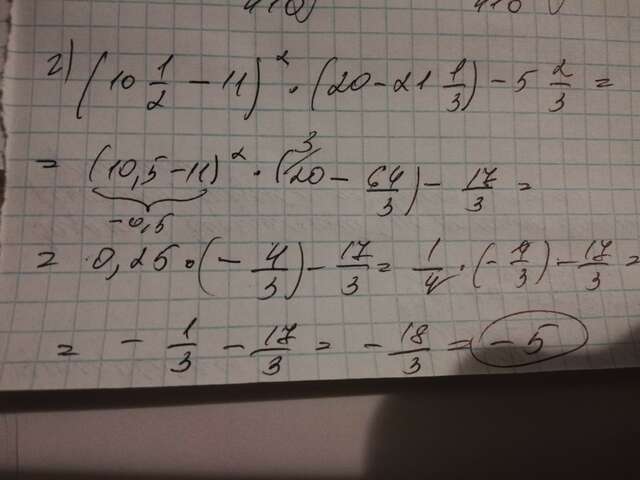 г) (10 1/2 - 11)² · (20 - 21 1/3) - 5 2/3 =
= (10,5 - 11)² · (20 - 64/3) - 17/3 =
3
-0,5
= 0,25 · (- 4/3) - 17/3 = 1/4 · (- 4/3) - 17/3 =
= - 1/3 - 17/3 = - 18/3 = -5